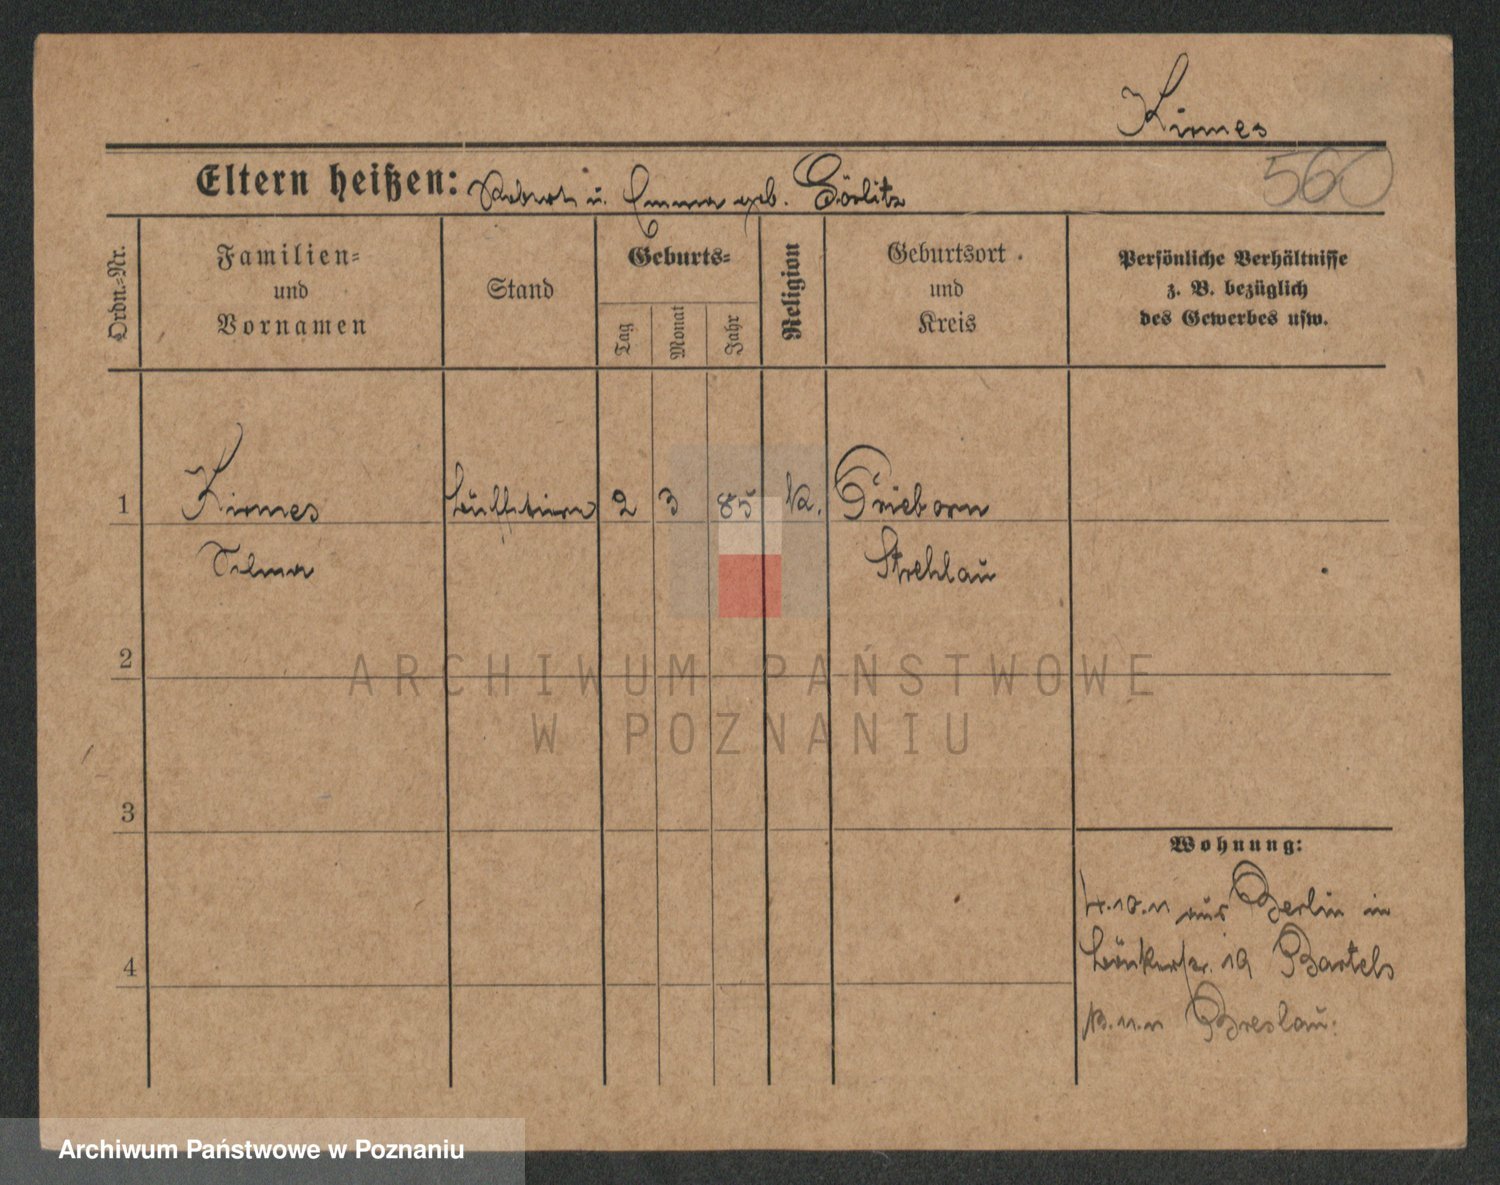 Kirmes
560
Eltern heißen: Robert u. Emma geb. Görlitz
Ordn.-Nr.
Familien-
und
Vornamen
Stand
Geburts-
Tag
Monat
Jahr
Religion
Geburtsort
und
Kreis
Persönliche Verhältnisse
z. B. bezüglich
des Gewerbes usw.
1
Kirmes
2
3
85
K.
Prieborn
Selma
Strehlau
2
3
4
Wohnung:
4.10.11 aus Berlin in
19 Bartels
11.11 Breslau.
ARCHIWUM PAŃSTWOWE
W POZNANIU
Archiwum Państwowe w Poznaniu